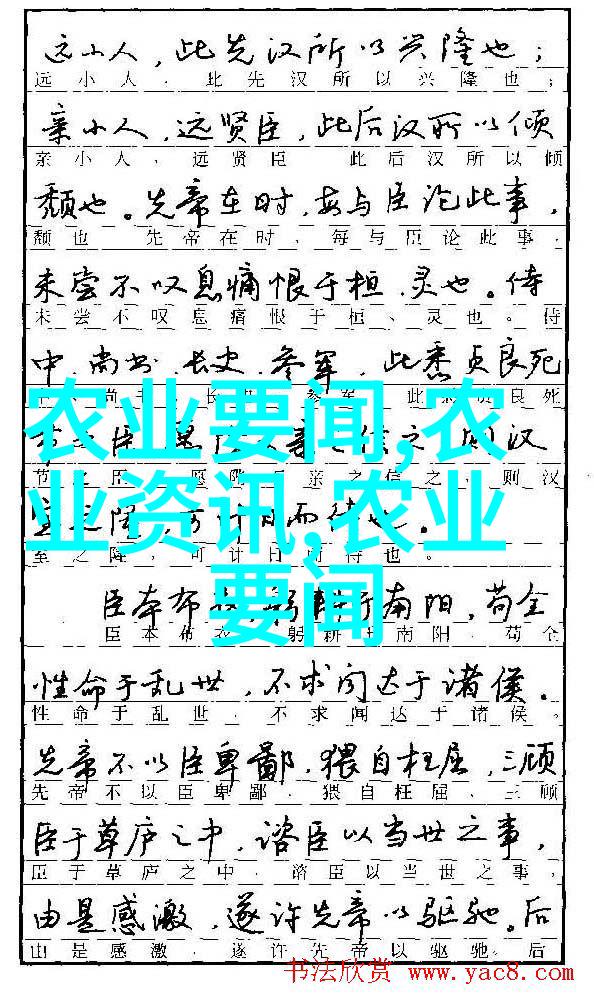 远小人，此先汉所以兴隆也；
远小人，此先汉所以兴隆也；
亲小人，远贤臣，此后汉所以倾
亲小人，远贤臣 此后汉所以倾
颓也。先帝在时，每与臣论此事，
颓也 先帝在时，每与臣论此事，
未尝不叹息痛恨于桓、灵也。侍
未尝不叹息痛恨于桓、灵也。侍
中、尚书、长史、参军，此悉贞良死
农业要闻,农
汉
节之臣 愿陛 亲之信之 则汉
业资讯,农业
室之隆 可计日而待也。
室之隆，可计日而待也。
要闻
臣本布衣 躬耕于南阳，苟全
臣本布衣 躬耕于南阳，苟全
性命于乱世，不求闻达于诸侯。
性命于乱世，不求闻达于诸侯。
先帝不以臣卑鄙，猥自枉屈，三顾
先帝不以臣卑鄙，猥自枉屈、三顾
臣于草庐之中，谘臣以当世之事，
臣于草庐之中，谘臣以当世之事，
由是感激，遂许先帝以驱驰。后
由是感激，遂许先帝以驱驰。后
书法欣赏 www.yac8.com